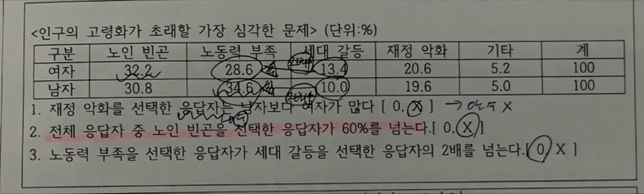 <인구의 고령화가 초래할 가장 심각한 문제> (단위:%)
구분 노인 빈곤 노동력 부족 세대 갈등 재정 악화 기타 계
여자 32.2 28.6 13.4 20.6 5.2 100
남자 30.8 34.6 10.0 19.6 5.0 100
1. 재정 악화를 선택한 응답자는 남자보다 여자가 많다 [ O, X ] → 인원수 X
2. 전체 응답자 중 노인 빈곤을 선택한 응답자가 60%를 넘는다.[ O, X ]
3. 노동력 부족을 선택한 응답자가 세대 갈등을 선택한 응답자의 2배를 넘는다.[ O, X ]